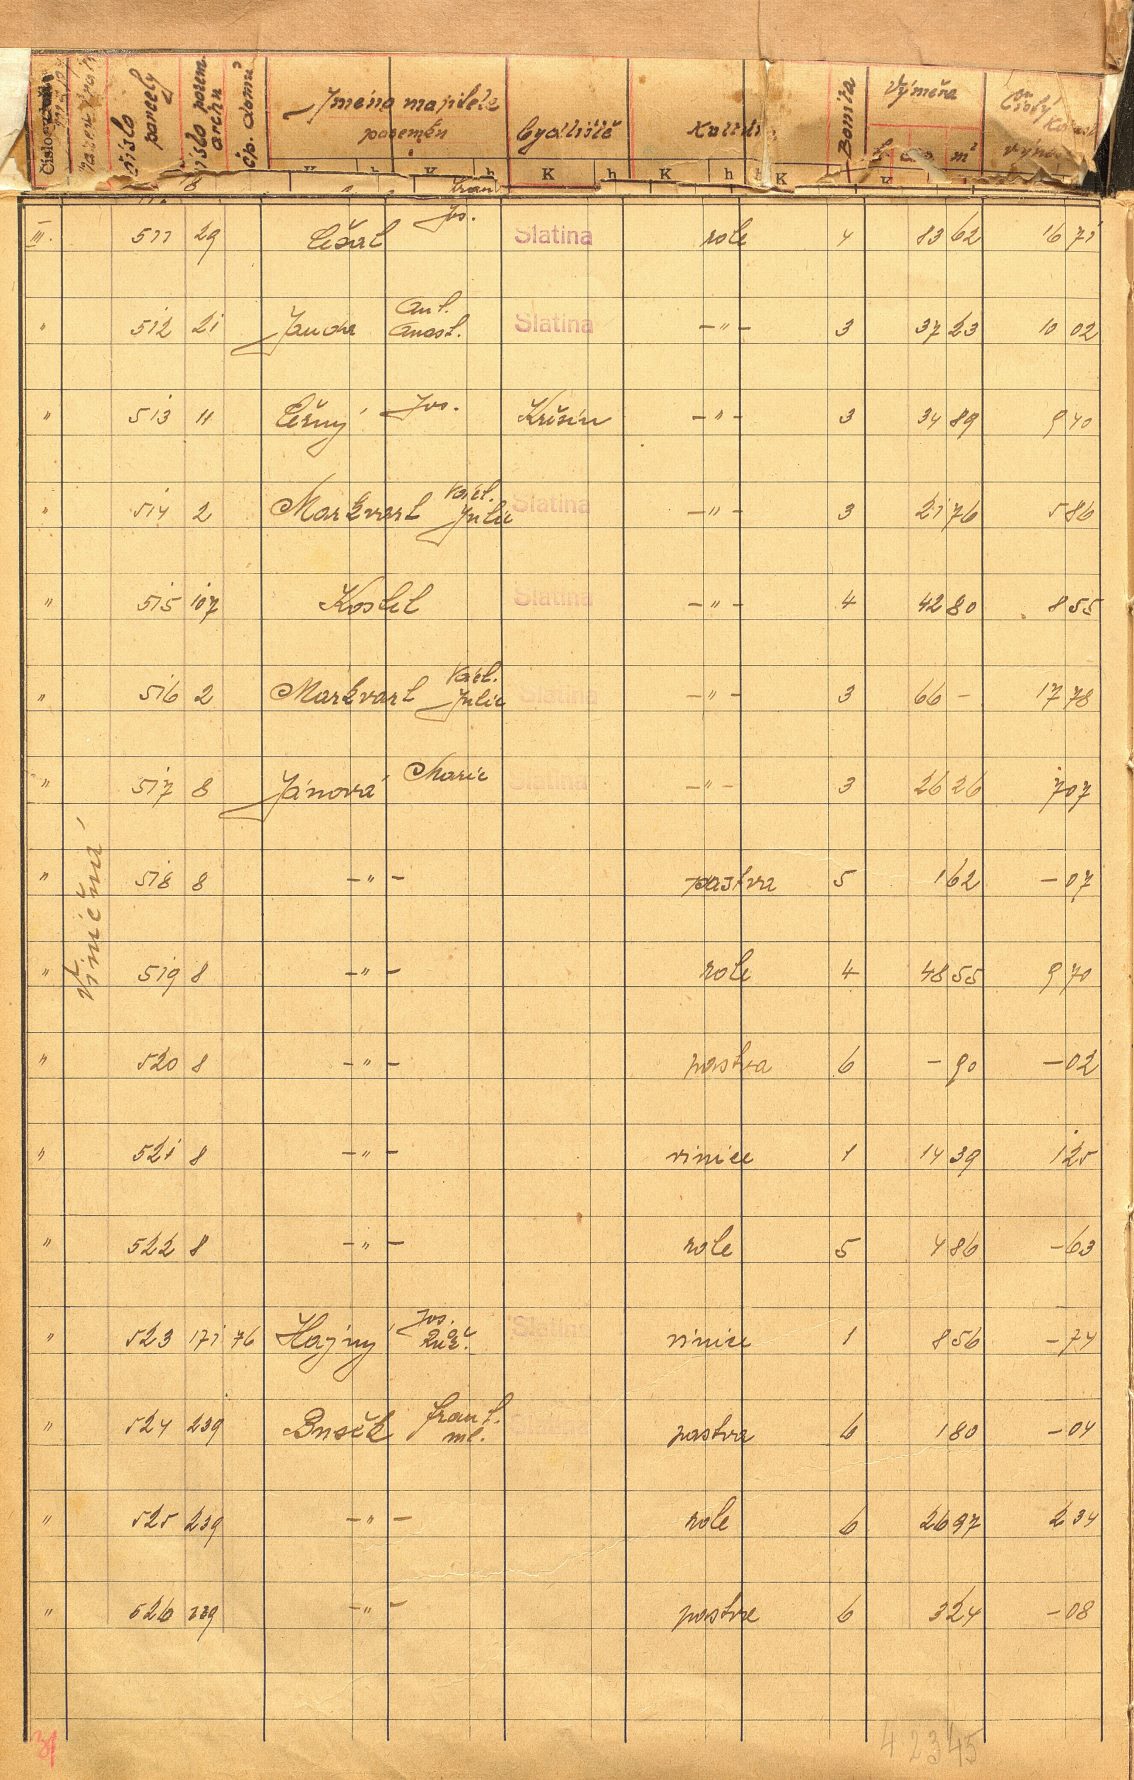 číslo parcely
číslo pozem. archu
čp. domů
Jméno majitele
pozemku
bydliště
Bonita
Výměra
m²
Čistý
K h K h K h K h K
Jos.
III. 511 29 Slatina role 4 83 62 16 71
" 512 21 Janda Ant. Anast. Slatina -"- 3 37 23 10 02
" 513 11 Černý Jos. Křesín -"- 3 34 89 9 40
" 514 2 Markvart Václ. Julie Slatina -"- 3 21 76 5 86
" 515 107 Kostel Slatina -"- 4 42 80 8 55
" 516 2 Markvart Václ. Julie Slatina -"- 3 66 - 17 78
" 517 8 Jánová Marie Slatina -"- 3 26 26 7 07
Viniční
" 518 8 -"- pastva 5 1 62 -07
" 519 8 -"- role 4 48 55 9 70
" 520 8 -"- pastva 6 -90 -02
" 521 8 -"- vinice 1 14 39 1 25
" 522 8 -"- role 5 4 86 -63
" 523 171 76 Hajný Jos. Růž. Slatina vinice 1 8 56 -74
" 524 239 Frant. ml. Slatina pastva 6 1 80 -04
" 525 239 -"- role 6 26 97 2 34
" 526 239 -"- pastva 6 3 24 -08
31
4 23 45